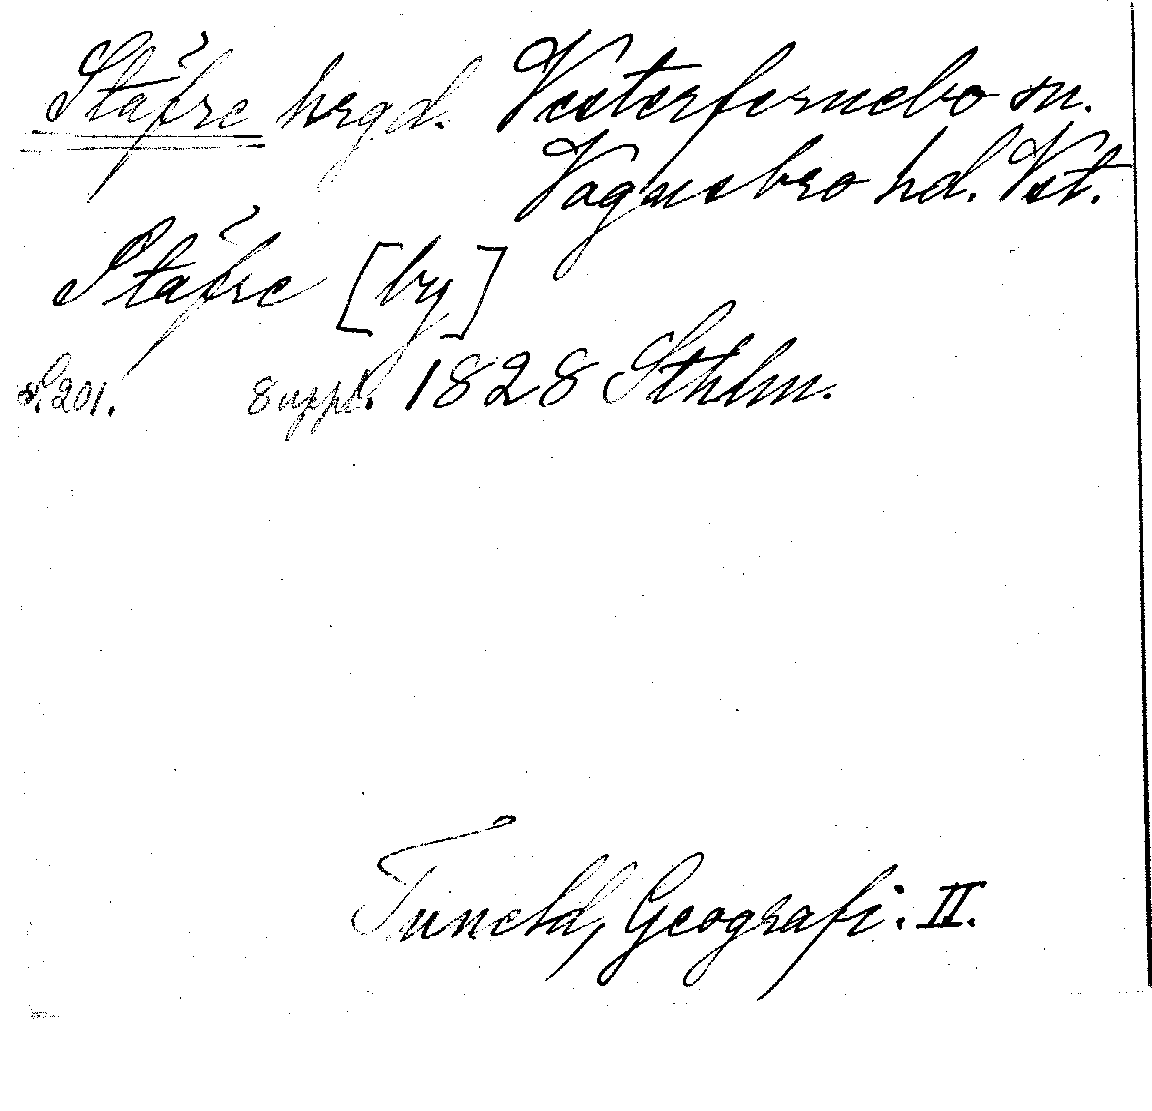 Stafre hrgd. Vesterfernebo sn.
Vagnsbro hd. Vst.
Stafre [by]
S. 201. 8 uppl. 1828 Sthlm.
Tuneld, Geografi. II.